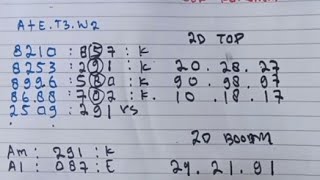 A+E.T3.W2
8210 : 857 : K
8253 : 291 : K
8926 : 580 : K
8688 : 702 : K.
2509 : 291 rs
2D TOP
20 . 28 . 27
90 . 98 . 97
10 . 18 . 17
Am : 291 : K
A1 : 087 : E
2D
29 . 21 . 91